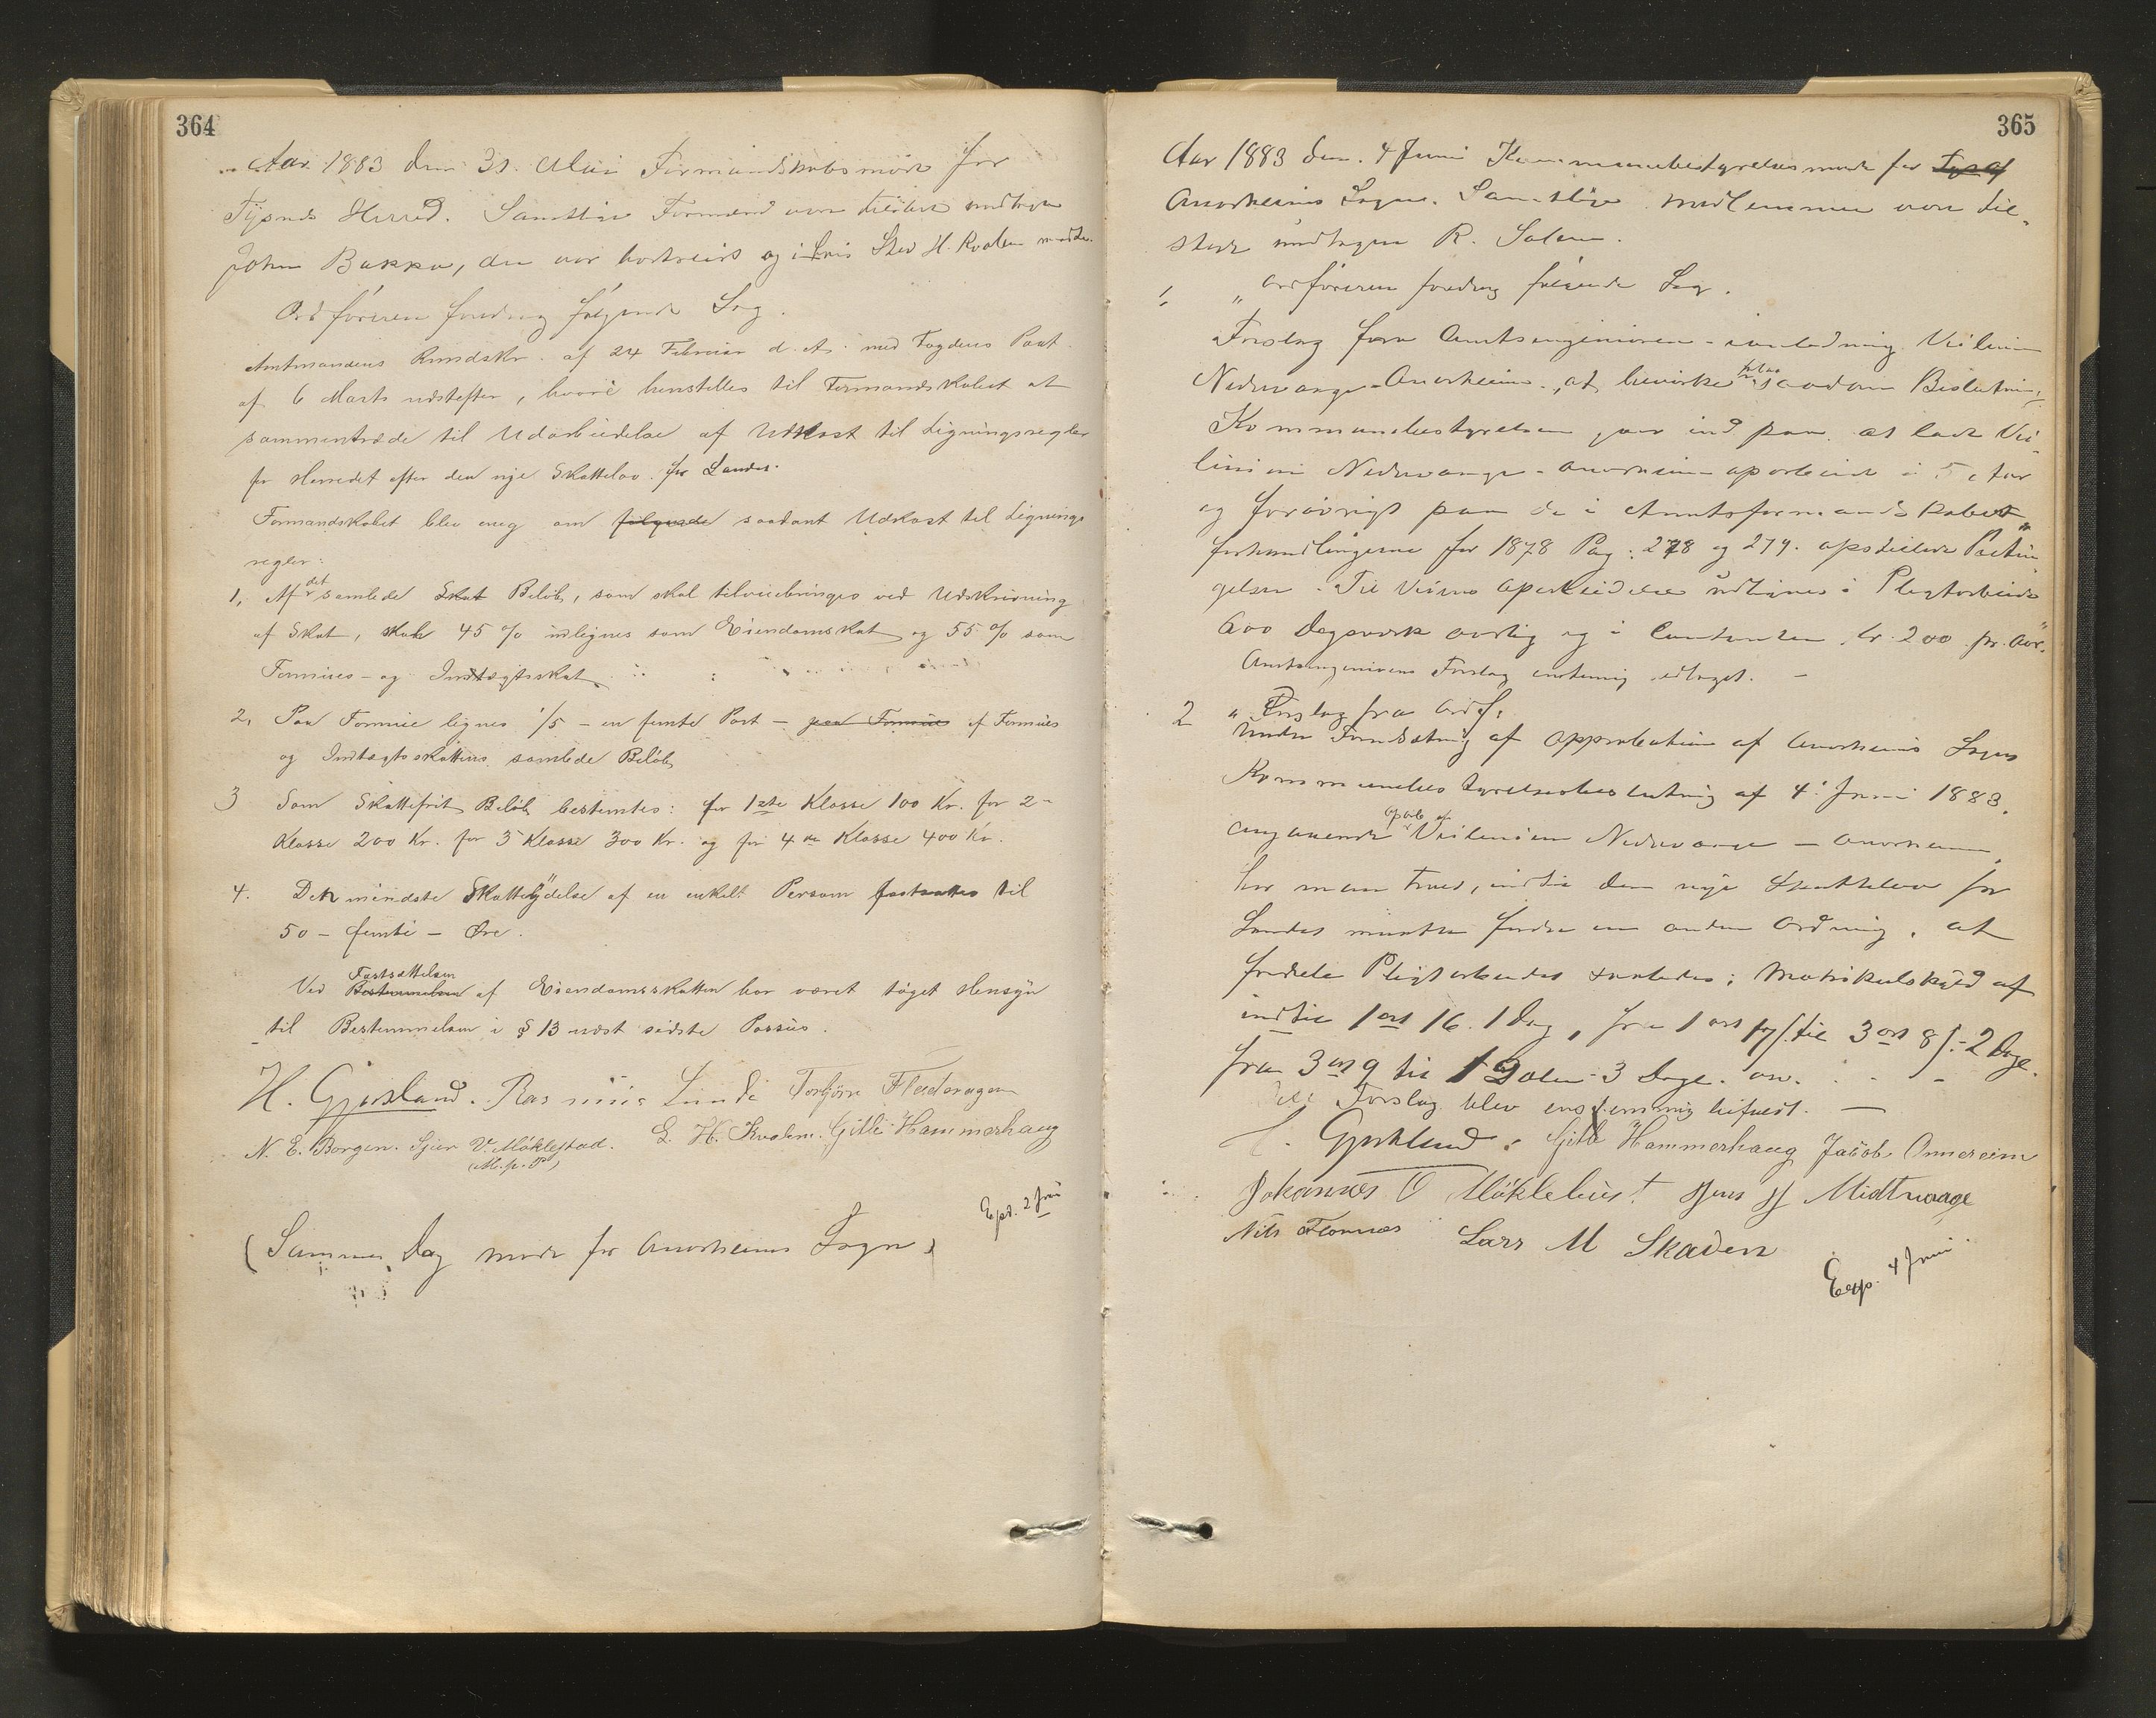 364
Aar 1883 den 31. Mai Formandskabsmöde for
Tysnes Herred. Samtlige Formænd var tilstede undtagen
John Bakka, der var bortreist og i hvis Sted H. Kvalen mødte.
Ordföreren foredrog følgende Sag.
Amtmandens Rundskr. af 24 Februar d. A. med Fogdens Paat.
af 6 Marts udstefter, hvori henstilles til Formandskabet at
sammentræde til Udarbeidelse af Udkast til Ligningsregler
for Herredet efter den nye Skattelov for Landet.
Formandskabet blev enig om følgende saadant Udkast til Lignings
regler:
1, Af det samlede Skat Beløb, som skal tilveiebringes ved Udskrivning
af Skat, skal 45 % udlignes som Eiendomskat og 55 % som
Formues- og Indtægtsskat.
2, Paa Formue lignes 1/5 - en femte Part - paa Formues af Formues
og Indtægtsskattens samlede Beløb
3 Som Skattefrit Beløb bestemtes: for 1ste Klasse 100 Kr. for 2-
Klasse 200 Kr. for 3 Klasse 300 Kr. og for 4de Klasse 400 Kr.
4. Den mindste Skatteydelse af en enkelt Person fastsattes til
50 - femti - Øre.
Ved Bestemmelsen Fastsættelsen af Eiendomsskatten har været taget Hensyn
til Bestemmelsen i § 13 næst sidste Passus.
H. Gjerstand. Rasmus Lunde Torbjörn Fladeragen
N. E. Borgen. Sjur V. Møklestad. L. H. Kvalen. Gitle Hammerhaug
(M. p. P)
Exp. 2 Juni
(Samme Dag møde for Onarheims Sogn)
365
Aar 1883 den. 4 Juni Kommunebestyrelsesmøde for Tys af
Onarheims Sogn. Samtlige Medlemmer var til-
stede undtagen R. Solem.
1, " Ordföreren foredrog følgende Sag.
Forslag fra Amtsingeniøren - i anledning Veilinien
Nedrevaage-Onarheim, at bevirke saadan Beslutning,
Kommunebestyrelsen gaar ind paa at lade Vei-
linien Nedrevaage - Onarheim oparbeide i 5 Aar
og forøvrigt paa de i Amtsformandskabets
forhandlingerne for 1878 Pag: 278 og 279. opstillede Betin-
gelser. Til Veiens Oparbeidelse udlignes i Pligtarbeide
600 Dagsværk aarlig og i Contanter kr. 200 pr. Aar.
Amtsingeniørens Forslag enstemmig vedtaget. -
2 " Forslag fra Ordf.:
Under Forudsætning af Approbation af Onarheims Sogns
Kommunebestyrelsesbeslutning af 4. Juni 1883,
angaaende oparb. af Veilinien Nedrevaage - Onarheim,
har man troet, indtil den nye Skattelov for
Landet maatte fordre en anden Ordning, at
fordele Pligtarbeidet saaledes: Matrikulskyld af
indtil 1 ort 16. 1 Dag, fra 1 ort 17 ß til 3 ort 8 ß - 2 Dage.
fra 3 ort 9 til 1 Daler - 3 Dage. osv. . . -
Dette Forslag blev enstemmig bifaldt. —
H. Gjerstand. Gitle Hammerhaug Jacob Onnereim
Johannes O Møklebust Jens J Midtvaage
Nils Flornes Lars M Skaden
Exp. 4 Juni